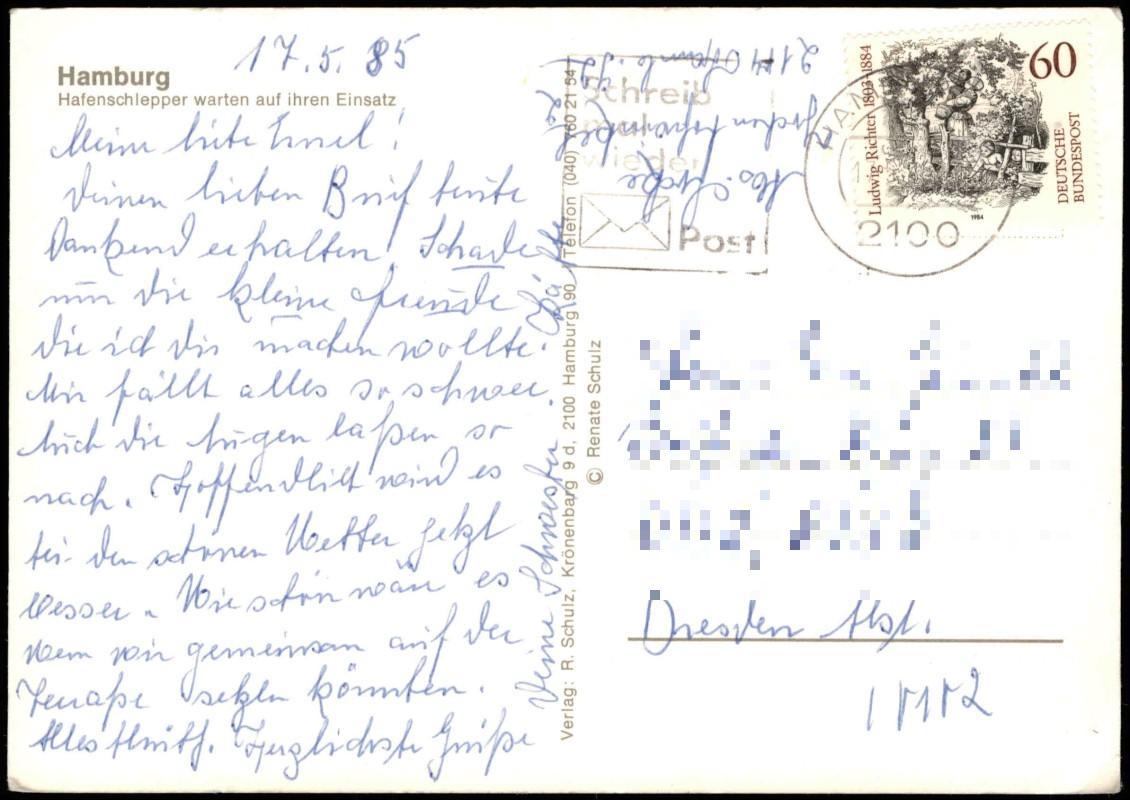 17.5.85
Hamburg
Hafenschlepper warten auf ihren Einsatz
Meine liebe !
Deinen lieben Brief heute
Dankend erhalten. Schade
um die kleine Freude
die ich dir machen wollte.
Mir fällt alles so schwer.
Auch die Augen laßen so
nach. Hoffendlich wird es
bei den schönen Wetter jetzt
besser. Wie schön wäre es
wenn wir gemeinsam auf der
Terraße setzen könnten.
Alles Gruß. Herzlichste Grüße
Deine Schwester Käthe
Verlag: R. Schulz, Krönenbarg 9 d, 2100 Hamburg 90, Telefon (040) 760 21 54
© Renate Schulz
Schreib
mal
wieder
Post
Abs.
2104
2100
Ludwig-Richter 1803-1884
60
DEUTSCHE
BUNDESPOST
1984
Dresden